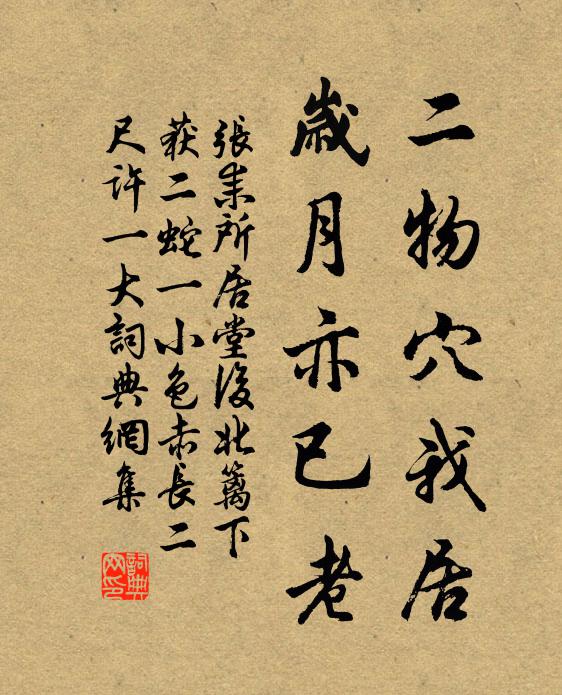 二物穴我居
歲月亦已老
張耒所居堂後北籬下
获二蛇一小色赤長二
尺許一大詞典網集
詞典网印